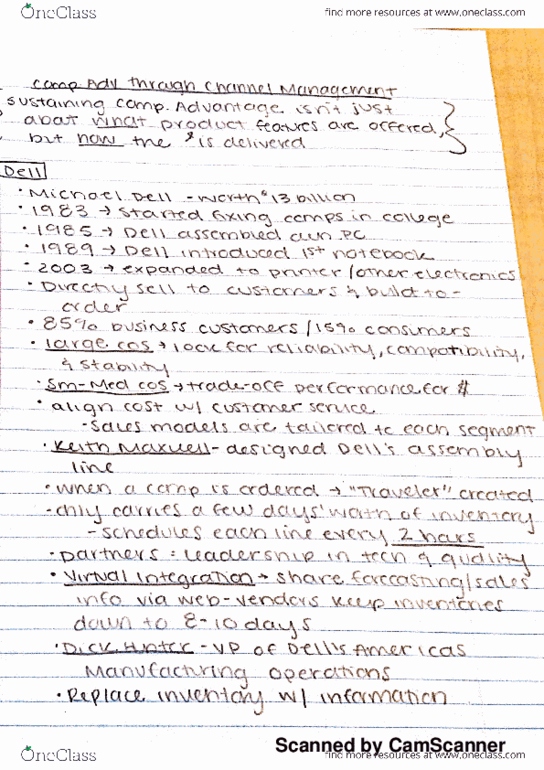 OneClass
find more resources at www.oneclass.com
Comp Adv through Channel Management
sustaining comp. Advantage isn't just
about what product features are offered,
but how the " is delivered
Dell
• Michael Dell - worth $13 billion
• 1983 → started fixing comps in college
• 1985 → Dell assembled own PC
• 1989 → Dell introduced 1st notebook
• 2003 → expanded to printer/other electronics
• Directly sell to customers & build-to-
order
• 85% business customers / 15% consumers
• large cos → look for reliability, compatibility,
& stability
• Sm-Med cos → trade-off performance for $
• align cost w/ customer service
- sales models are tailored to each segment
• Keith Maxwell - designed Dell's assembly
line
• when a comp is ordered → "Traveler" created
- only carries a few days' worth of inventory
- schedules each line every 2 hours
• partners = leadership in tech & quality
• Virtual Integration → share forecasting/sales
info via web-vendors keep inventories
down to 8-10 days
• Dick Hunter - VP of Dell's Americas
Manufacturing operations
• Replace inventory w/ information
Scanned by CamScanner
OneClass
find more resources at www.oneclass.com